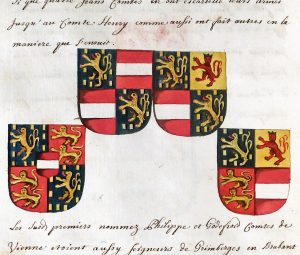 quatre Jeans Comtes en ont escartelé leurs armes
Jusqu'au Comte Henry comme aussi ont fait autres en la
maniere que s'ensuit.
Les susd premiers nommez Philippe et Godefroid Comtes de
Vienne etoient aussy seigneurs de Grimberges en Brabant